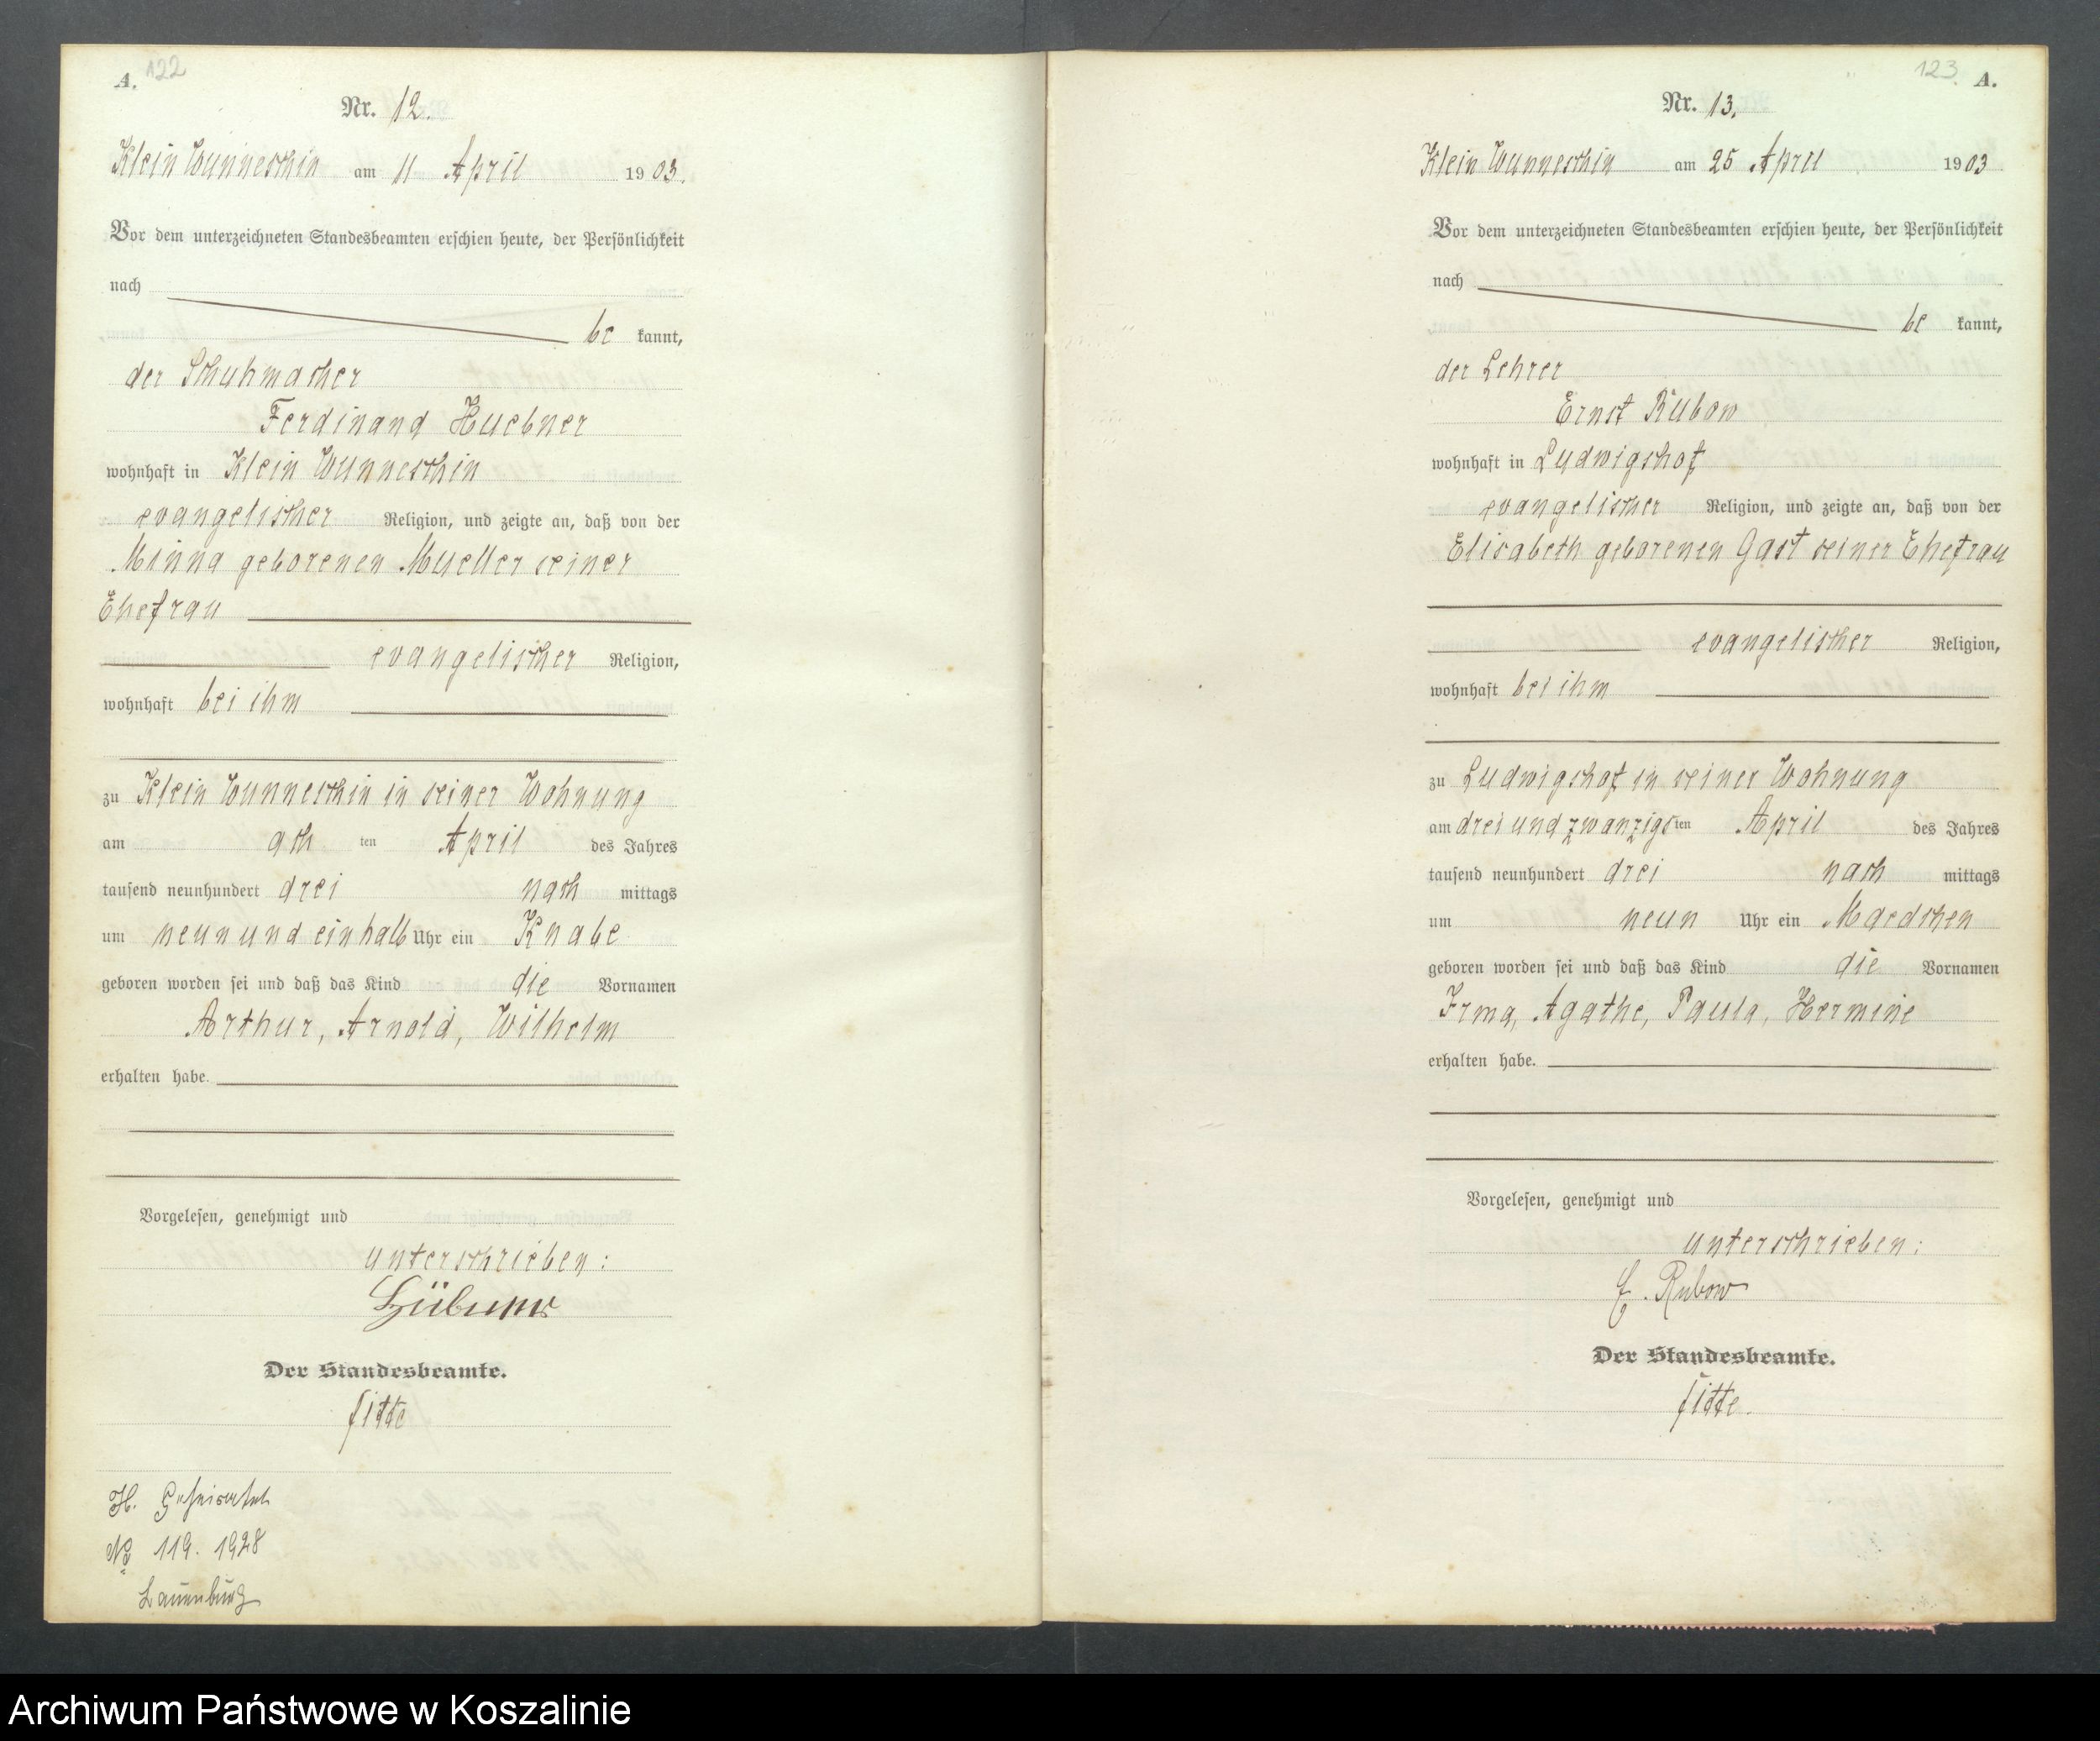 A. 122
Nr. 12.
Klein Wunneschin am 11 April 1903.
Vor dem unterzeichneten Standesbeamten erschien heute, der Persönlichkeit
nach
be kannt,
der Schuhmacher
Ferdinand Huebner
wohnhaft in Klein Wunneschin
evangelischer Religion, und zeigte an, daß von der
Minna geborenen Mueller seiner
Ehefrau
evangelischer Religion,
wohnhaft bei ihm
zu Klein Wunneschin in seiner Wohnung
am ach ten April des Jahres
tausend neunhundert drei nach mittags
um neun und einhalb Uhr ein Knabe
geboren worden sei und daß das Kind die Vornamen
Arthur, Arnold, Wilhelm
erhalten habe.
Vorgelesen, genehmigt und
unterschrieben:
Hübner
Der Standesbeamte.
Fitte
H.
No 119. 1928
Lauenburg
123 A.
Nr. 13.
Klein Wunneschin am 25 April 1903
Vor dem unterzeichneten Standesbeamten erschien heute, der Persönlichkeit
nach
be kannt,
der Lehrer
Ernst Rubow
wohnhaft in Ludwigshof
evangelischer Religion, und zeigte an, daß von der
Elisabeth geborenen Gast seiner Ehefrau
evangelischer Religion,
wohnhaft bei ihm
zu Ludwigshof in seiner Wohnung
am dreiundzwanzigsten April des Jahres
tausend neunhundert drei nach mittags
um neun Uhr ein Maedchen
geboren worden sei und daß das Kind die Vornamen
Irma, Agathe, Paula, Hermine
erhalten habe.
Vorgelesen, genehmigt und
unterschrieben:
E. Rubow
Der Standesbeamte.
Fitte.
Archiwum Państwowe w Koszalinie